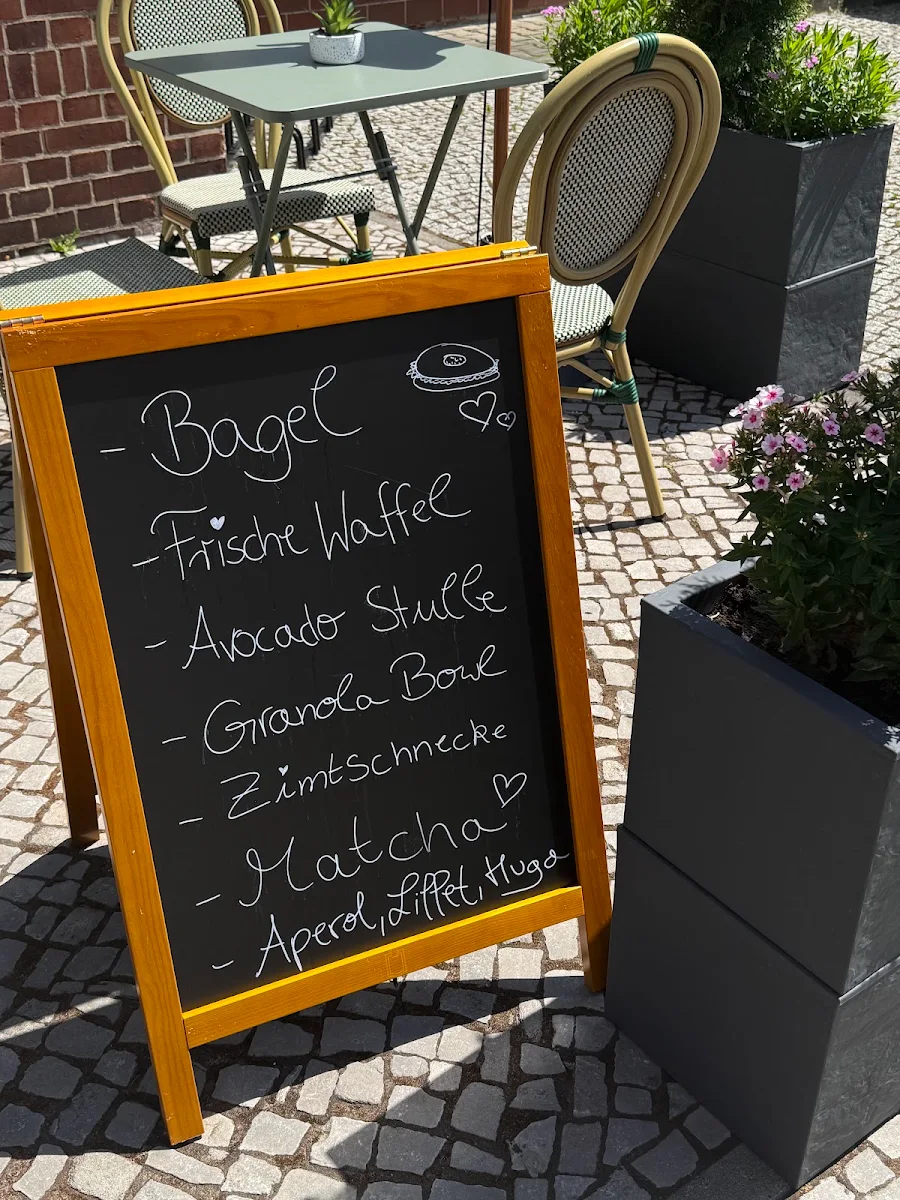 - Bagel
- Frische Waffel
- Avocado Stulle
- Granola Bowl
- Zimtschnecke
- Matcha
- Aperol, Liffet, Hugo